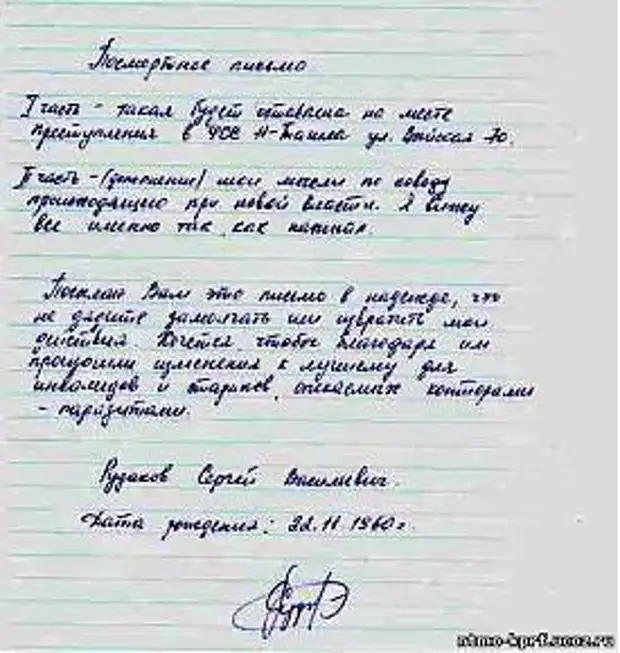 Посмертное письмо
I часть - такая будет оставлена на месте
преступления в ФСС Н-Тагила ул. 70.
II часть - (дополнение) мои мысли по поводу
происходящего при новой власти. Я вижу
все именно так, как написал.
Посылаю Вам это письмо в надежде, что
не дадите замолчать или извратить мои
действия. Хочется, чтобы благодаря им
произошли изменения к лучшему для
инвалидов и стариков, конторами
- паразитами.
Рудаков Сергей Васильевич.
Дата рождения: 22.11.1960г.
ntmo-kprf.ucoz.ru